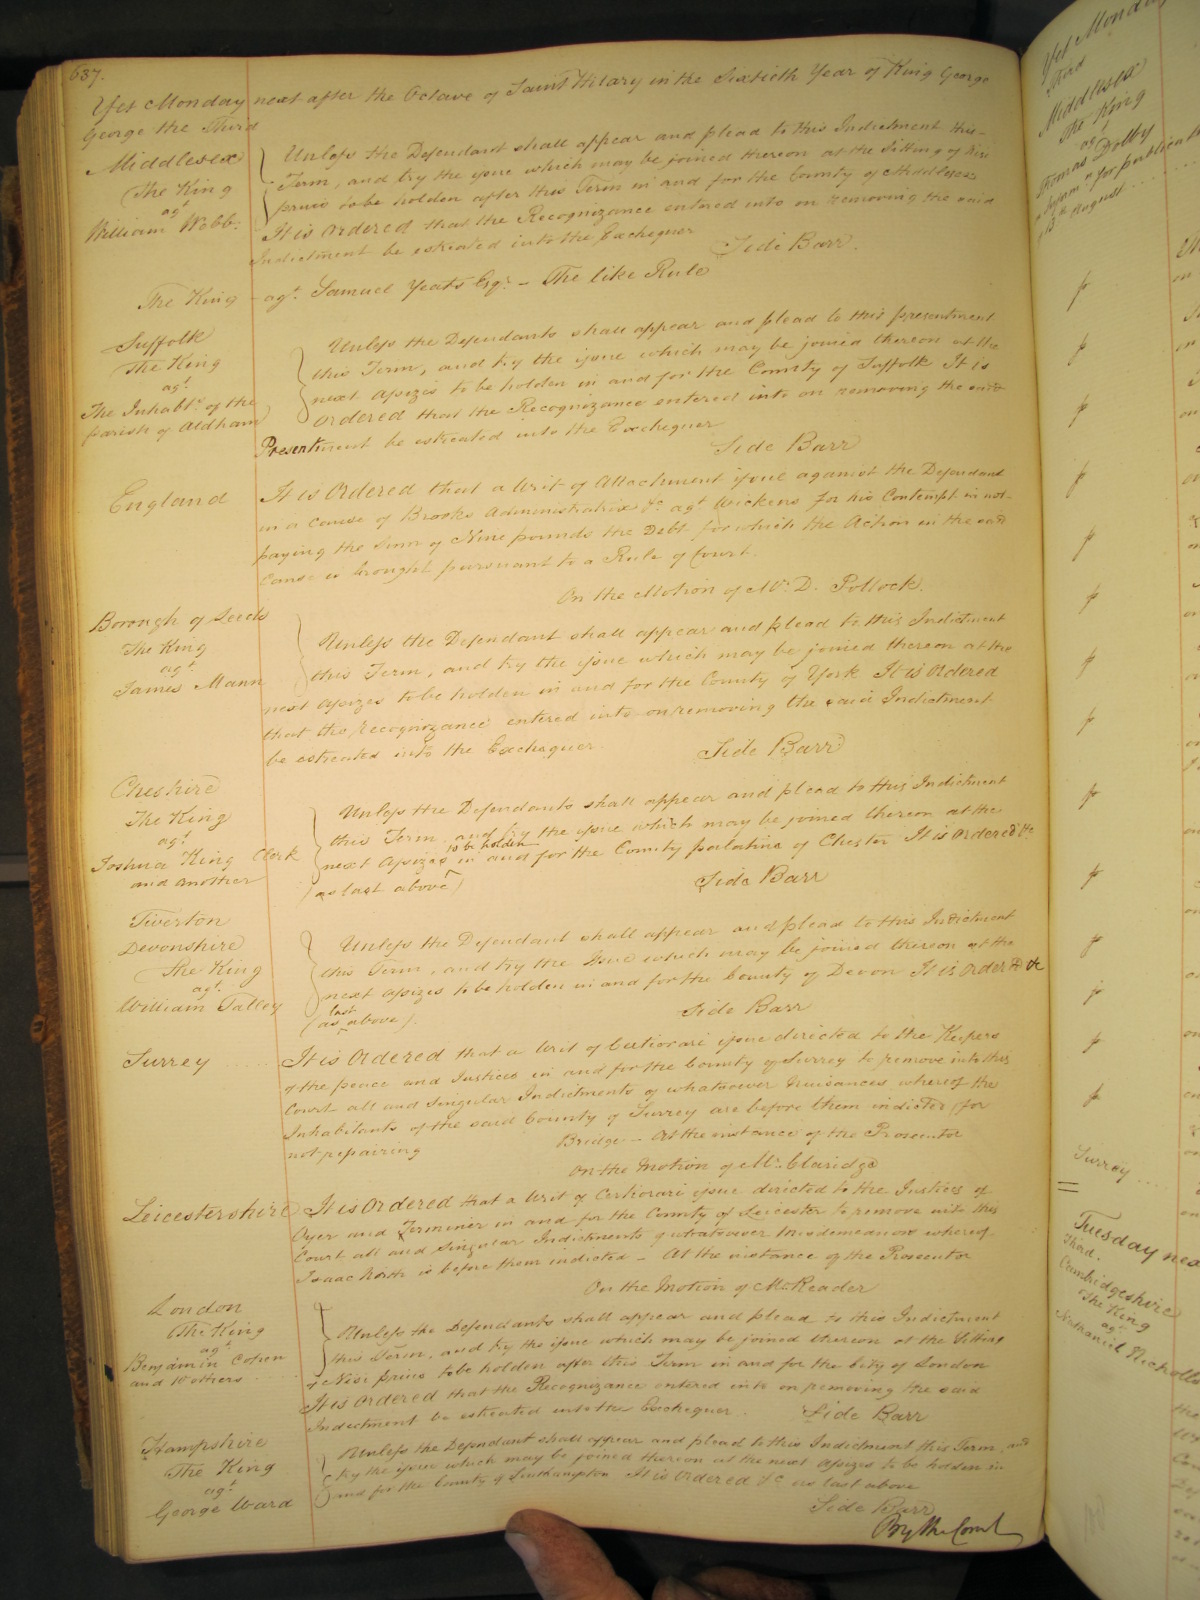 637.
Yet Monday next after the Octave of Saint Hilary in the Sixtieth Year of King George
George the Third
Middlesex
The King
agt
William Webb.
Unless the Defendant shall appear and plead to this Indictment this
Term, and try the issue which may be joined thereon at the Sitting of Nisi
prius to be holden after this Term in and for the County of Middlesex
It is Ordered that the Recognizance entered into on removing the said
Indictment be estreated into the Exchequer
Side Barr.
The King agt. Samuel Yeats Esqr. – The like Rule
Suffolk
The King
agt.
The Inhabts. of the
parish of Aldham
Unless the Defendants shall appear and plead to this presentment
this Term, and try the issue which may be joined thereon at the
next Assizes to be holden in and for the County of Suffolk It is
Ordered that the Recognizance entered into on removing the said
Presentment be estreated into the Exchequer
Side Barr
England
It is Ordered that a Writ of Attachment issue against the Defendant
in a Cause of Brooks Administratrix &c agt. Wickens for his Contempt in not
paying the Sum of Nine pounds the Debt for which the Action in the said
Cause is brought pursuant to a Rule of Court.
On the Motion of Mr. D. Pollock.
Borough of Leeds
The King
agt.
James Mann
Unless the Defendant shall appear and plead to this Indictment
this Term, and try the issue which may be joined thereon at the
next Assizes to be holden in and for the County of York It is Ordered
that the recognizance entered into on removing the said Indictment
be estreated into the Exchequer.
Side Barr
Cheshire
The King
agt.
Joshua King Clerk
and another
Unless the Defendants shall appear and plead to this Indictment
this Term, and try the issue which may be joined thereon at the
next Assizes to be holden in and for the County palatine of Chester It is Ordered &c
(as last above)
Side Barr
Tiverton
Devonshire
The King
agt.
William Talley
Unless the Defendant shall appear and plead to this Indictment
this Term, and try the issue which may be joined thereon at the
next Assizes to be holden in and for the County of Devon It is Order'd &c
(as last above).
Side Barr
Surrey
It is Ordered that a Writ of Certiorari issue directed to the Keepers
of the peace and Justices in and for the County of Surrey to remove into this
Court all and singular Indictments of whatsoever Nuisances whereof the
Inhabitants of the said County of Surrey are before them indicted (for
not repairing Bridge – At the instance of the Prosecutor
On the Motion of Mr. Claridge
Leicestershire
It is Ordered that a Writ of Certiorari issue directed to the Justices of
Oyer and Terminer in and for the County of Leicester to remove into this
Court all and Singular Indictments of whatsoever Misdemeanors whereof
Isaac North is before them indicted – At the instance of the Prosecutor
On the Motion of Mr. Reader
London
The King
agt.
Benjamin Cohen
and 10 others
Unless the Defendants shall appear and plead to this Indictment
this Term, and try the issue which may be joined thereon at the Sitting
of Nisi prius to be holden after this Term in and for the City of London
It is Ordered that the Recognizance entered into on removing the said
Indictment be estreated into the Exchequer.
Side Barr
Hampshire
The King
agt.
George Ward
Unless the Defendant shall appear and plead to this Indictment this Term, and
try the issue which may be joined thereon at the next Assizes to be holden in
and for the County of Southampton It is Ordered &c as last above
Side Barr
By the Court
Yet Monday
Third
Middlesex
The King
agt
Thomas Dolby
for publication
13th August
Surrey
Tuesday next
Third.
Cambridgeshire
The King
agt.
Nathaniel Nicholls